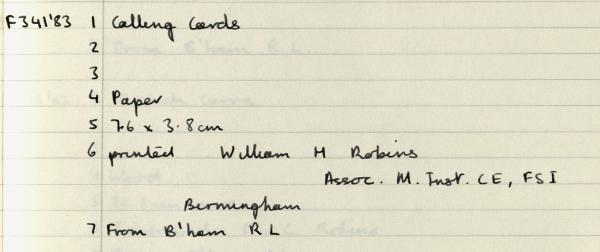 F341'83 1 Calling Cards
2
3
4 Paper
5 7.6 x 3.8cm
6 printed William H Robins
Assoc. M. Inst. CE, FSI
Birmingham
7 From B'ham R L